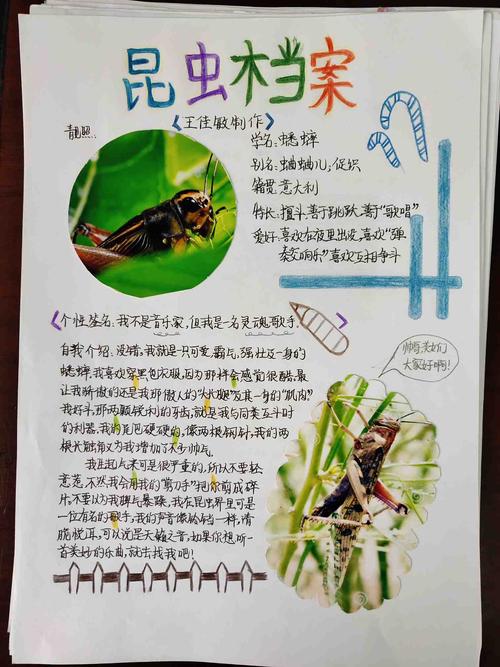 昆虫档案
《王佳敏制作》
靓照:
学名:蟋蟀
别名:蛐蛐儿,促织
籍贯:意大利
特长:擅斗,善于跳跃,善于“歌唱”
爱好:喜欢在夜里出没,喜欢“弹
奏交响乐”喜欢互相争斗
《个性签名:我不是音乐家,但我是一名灵魂歌手。》
自我介绍:没错,我就是一只可爱,霸气,强壮及一身的
蟋蟀。我喜欢穿黑色衣服,因为那样会感觉很酷,最
让我骄傲的还是我那傲人的“大长腿”及其一身的“肌肉”
我好斗,那两颗锐利的牙齿,就是我与同类互斗时
的利器。我的尾巴硬硬的,像两根钢针,我的两
根大触角又为我增加了不少帅气。
我生起气来可是很严重的,所以不要轻
意惹,不然我会用我的“剪刀手”把你剪成碎
片。不要以为我脾气暴躁,我在昆虫界里可是
一位有名的歌手,我的声音像铃铛一样,清
脆悦耳,可以说是天籁之音,如果你想听一
首美妙的乐曲,就去找我吧!
帅哥美女们
大家好啊!